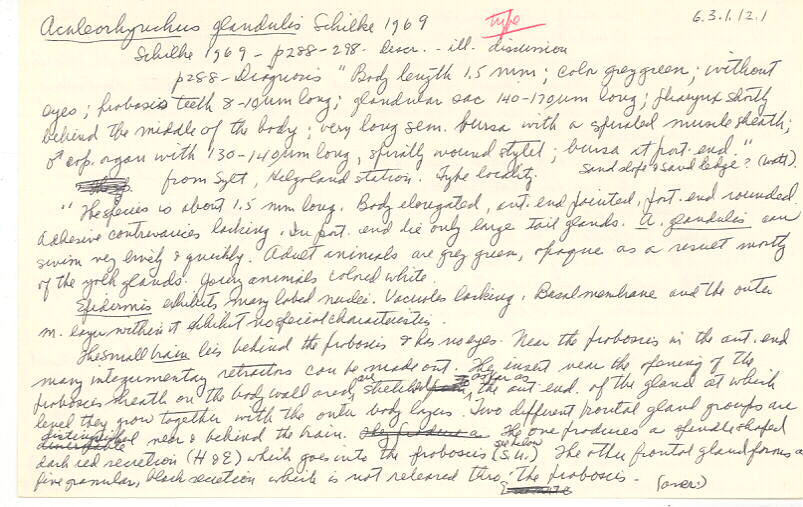 Aculeorhynchus glandulis Schilke 1969 type 6.3.1.12.1
Schilke 1969 - p288-298. Descr. - ill. discussion
p288 - Diagnosis "Body length 1.5 mm; color grey green; without
eyes; proboscis teeth 8-10 µm long; glandular sac 140-170 µm long; pharynx shortly
behind the middle of the body; very long sem. bursa with a spiraled muscle sheath;
♂ cop. organ with 130-140 µm long, spirally wound stylet; bursa at post. end"
from Sylt, Helgoland station. Type locality. Sand slope & sand ledge? (watt).
"The species is about 1.5 mm long. Body elongated, ant. end pointed, post. end rounded.
Adhesive contrivances lacking. In post. end lie only large tail glands. A. glandulis can
swim very lively & quickly. Adult animals are grey green, opaque as a result mostly
of the yolk glands. Young animals colored white.
Epidermis exhibits many lobed nuclei. Vacuoles lacking. Basal membrane and the outer
m. layer within it exhibit no special characteristics.
The small brain lies behind the proboscis & has no eyes. Near the proboscis in the ant. end
many integumentary retractors can be made out. They insert near the opening of the
proboscis sheath on the body wall and are stretched to as far as the ant. end. of the gland at which
level they grow together with the outer body layers. Two different frontal gland groups are
distinguished near & behind the brain. The one produces a spindle shaped
dark red secretion (H & E) which goes into the proboscis (see below). The other frontal gland forms a
fine granular, black secretion which is not released thru the proboscis. (over)